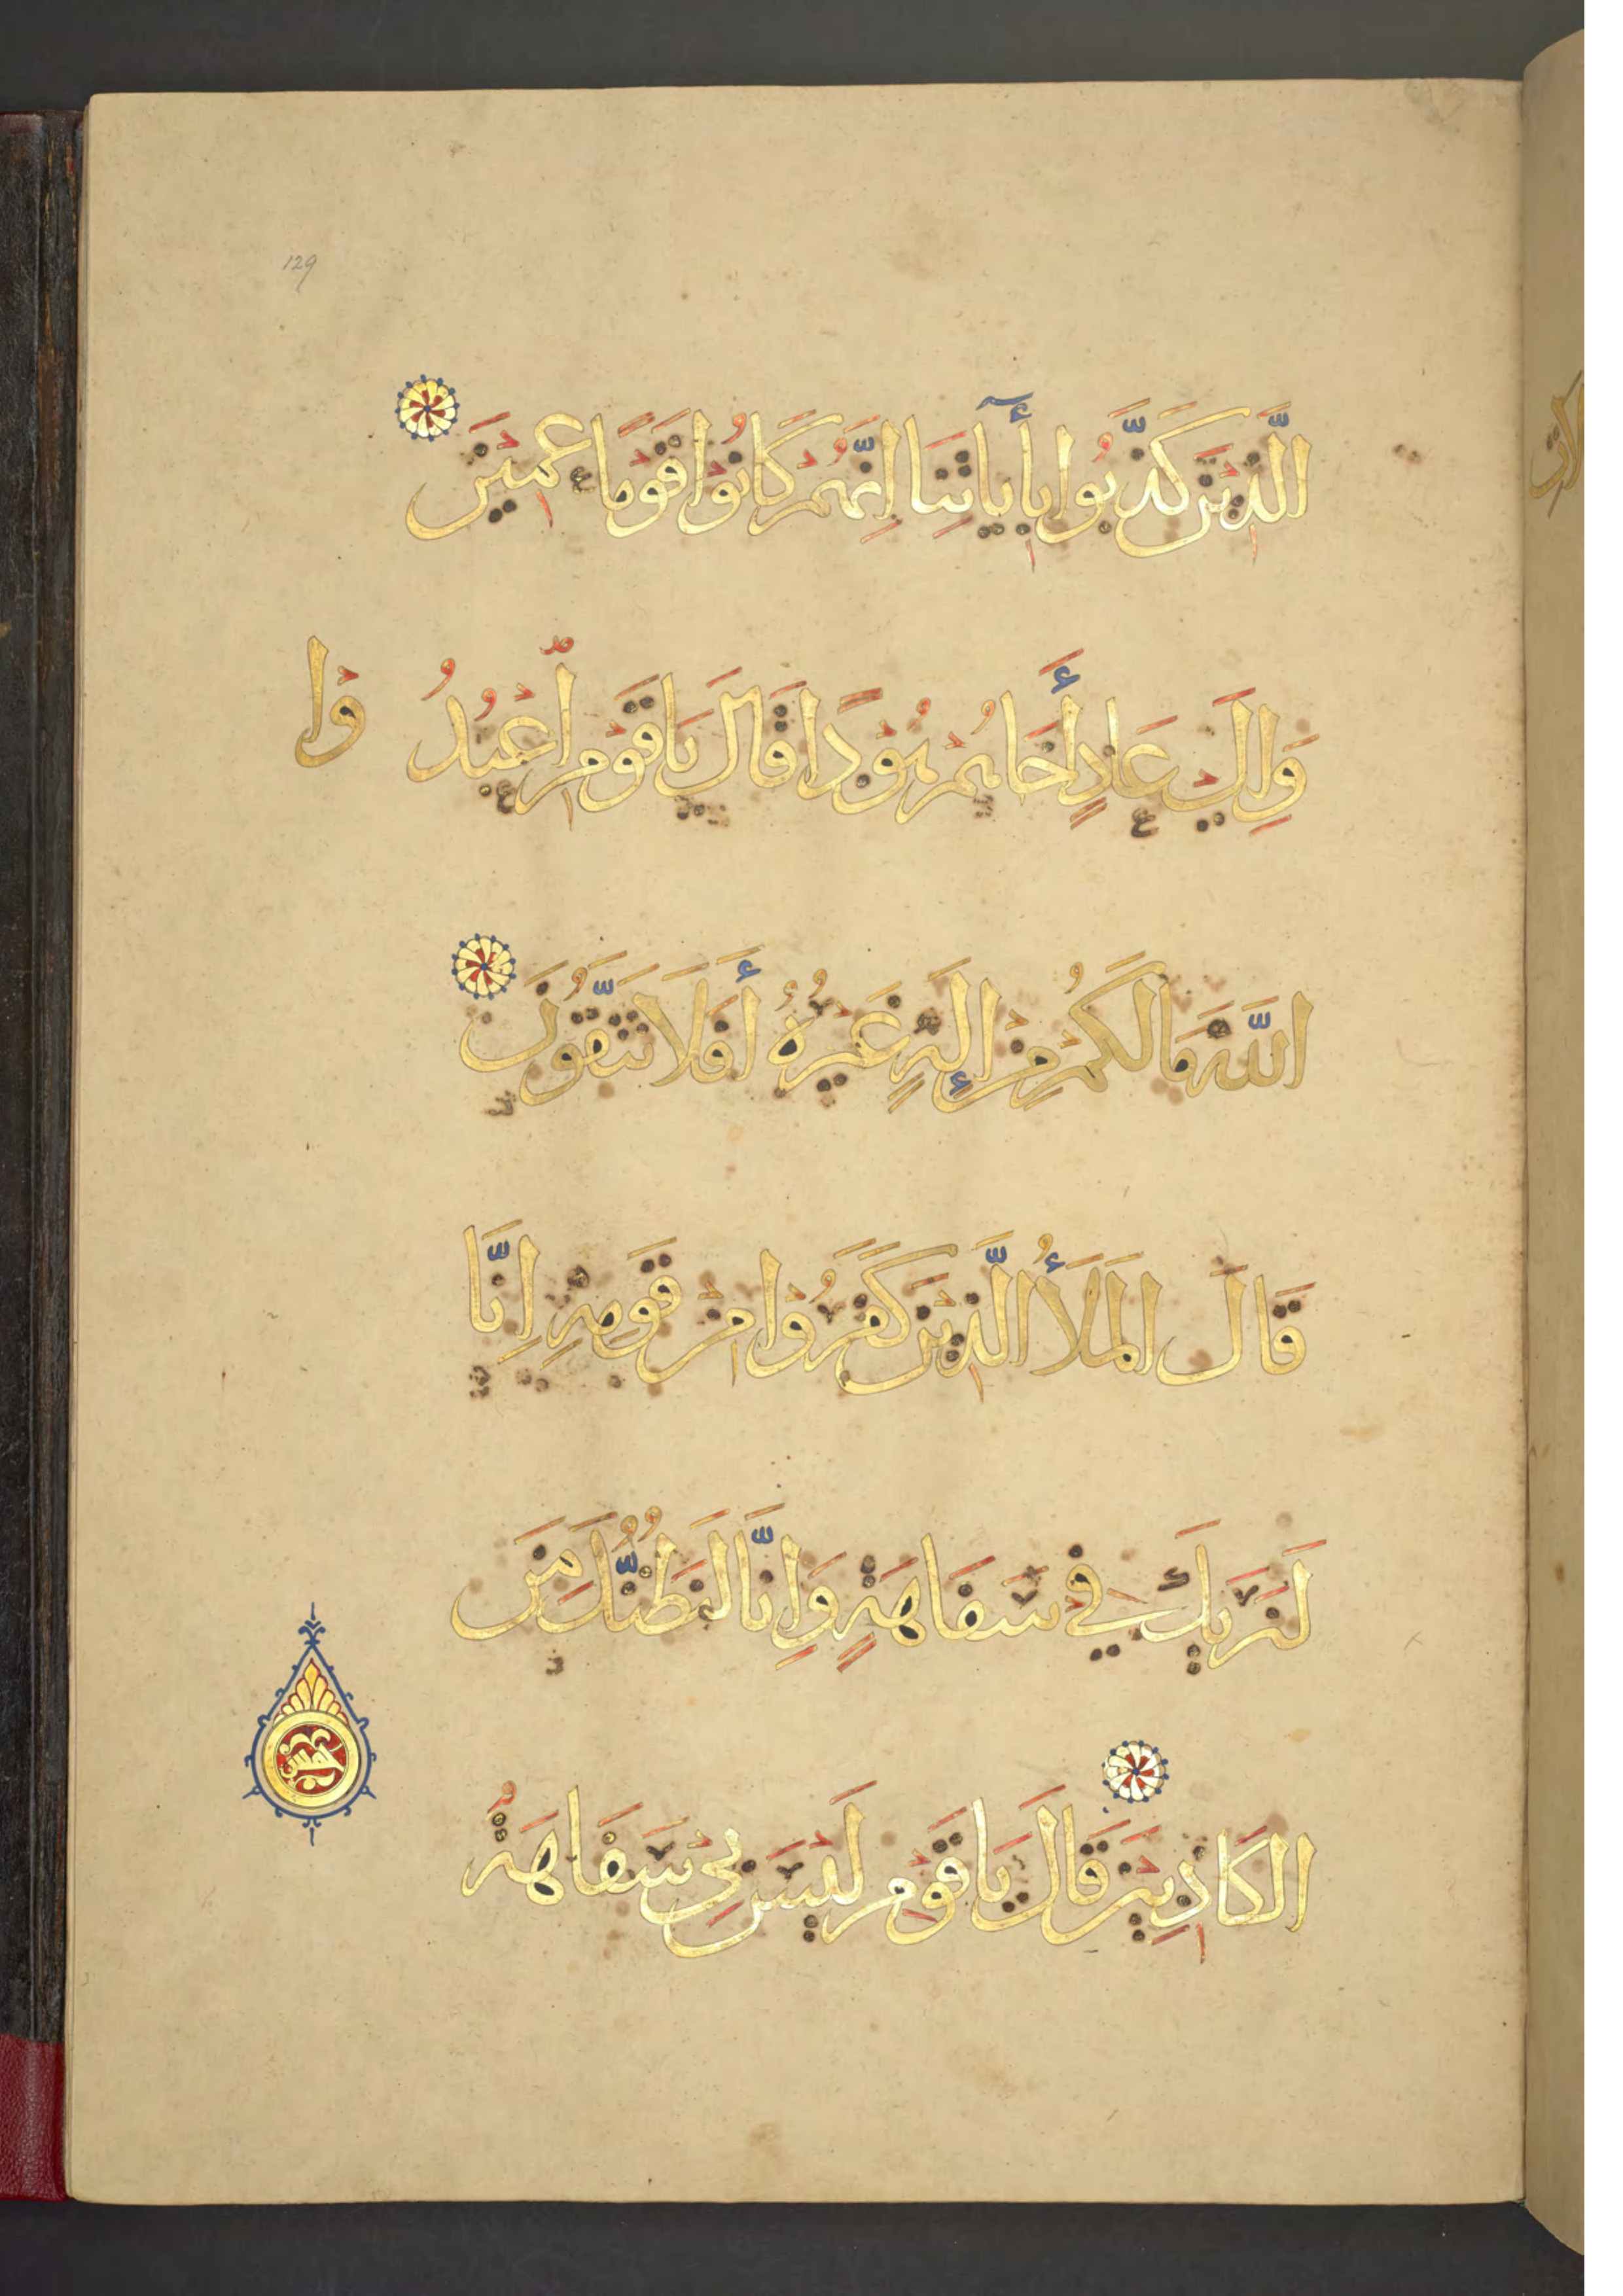 129
الَّذِينَ كَذَّبُوا بِأٓيَاتِنَا إِنَّهُمْ كَانُوْا قَوْمًا عَمِيْنَ
وَإِلَى عَادٍ أَخَاهُمْ هُوْدًا قَالَ يَا قَوْمِ اعْبُدُ وْا
اللَّهَ مَا لَكُمْ مِنْ إِلَهٍ غَيْرُهُ أَفَلَا تَتَّقُونَ
قَالَ الْمَلَأُ الَّذِيْنَ كَفَرُوْا مِنْ قَوْمِهِ إِنَّا
لَنَرَيكَ فِي سَفَاهَةٍ وَإِنَّا لَنَظُنُّكَ مِنَ
الْكَاذِبِيْنَ قَالَ يَا قَوْمِ لَيْسَ بِيْ سَفَاهَةٌ
خمس